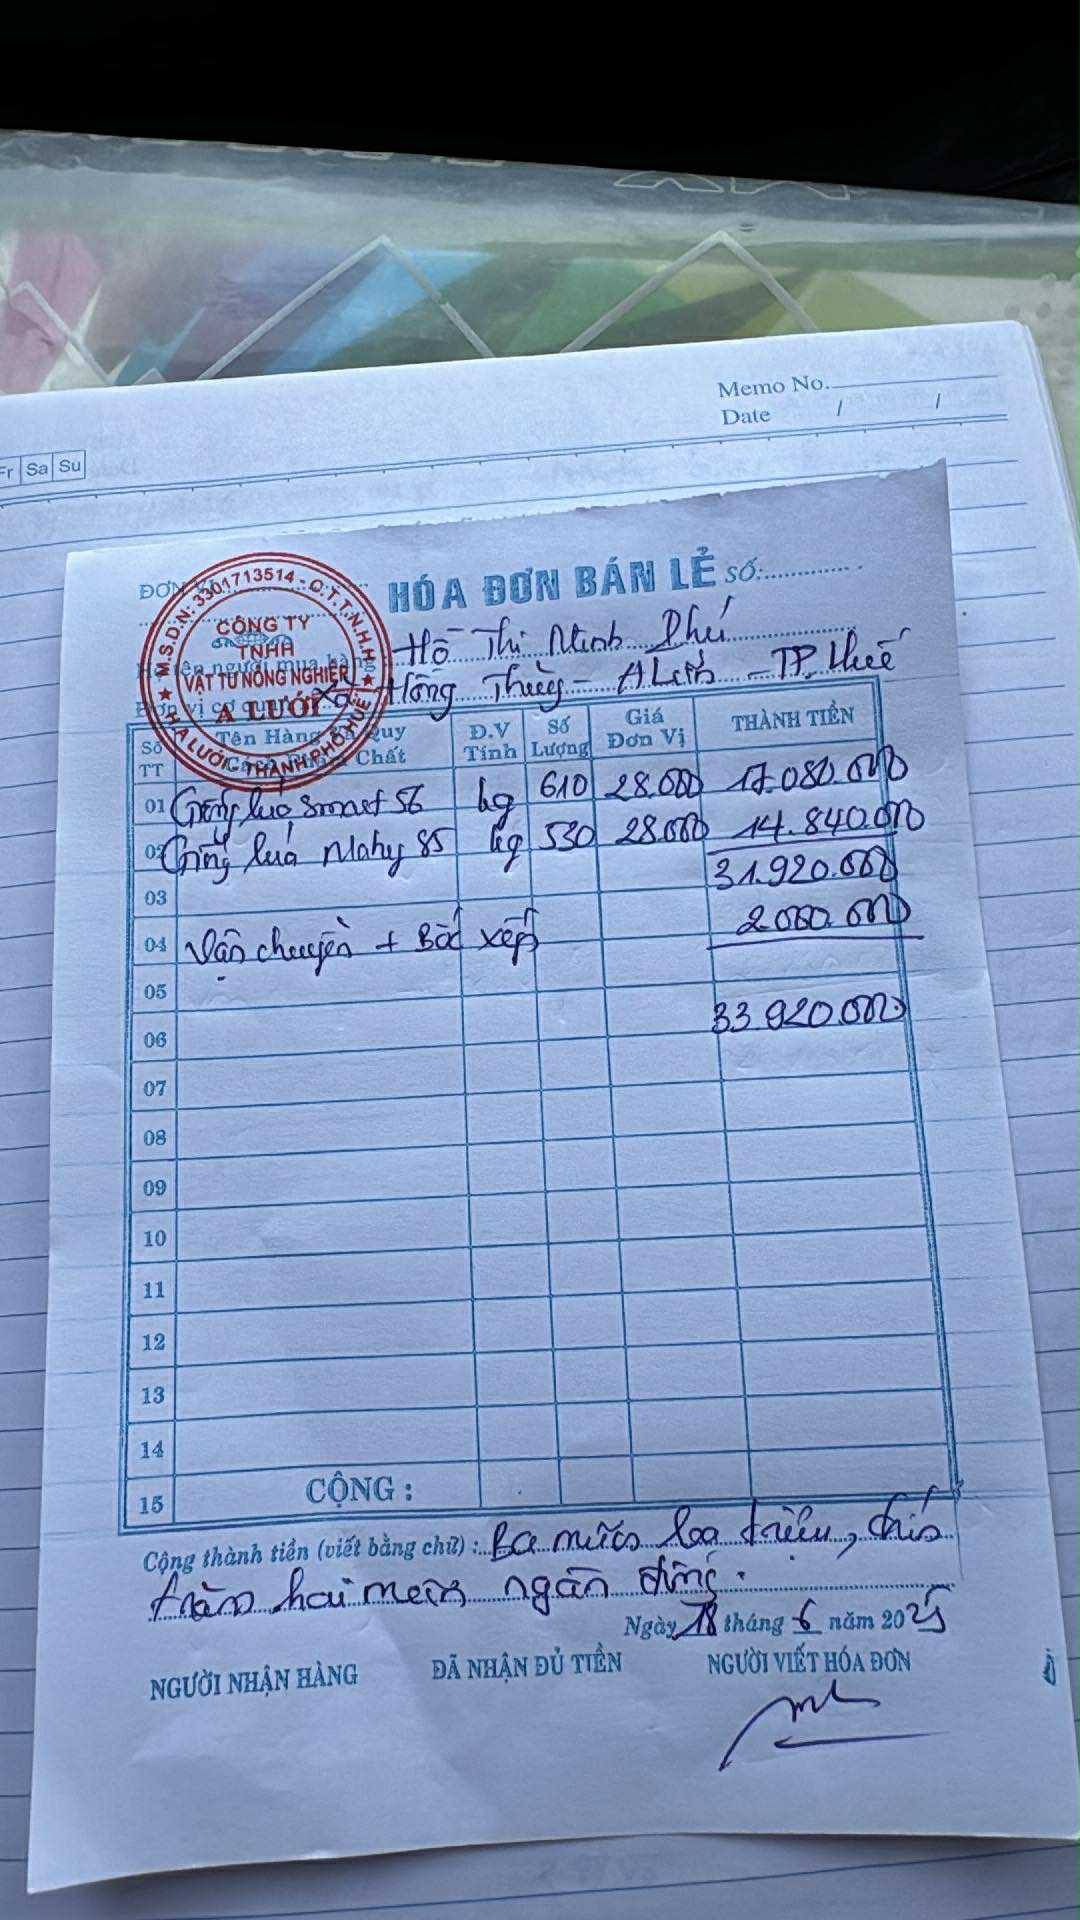 Memo No.
Date / /
Fr Sa Su
HÓA ĐƠN BÁN LẺ SỐ:
M.S.D.N: 3301713514 - C.T.T.N.H.H
CÔNG TY
TNHH
VẬT TƯ NÔNG NGHIỆP
A LƯỚI
H.A LƯỚI - THÀNH PHỐ HUẾ
ĐƠN
Họ tên người mua hàng Hồ Thị Minh Phú
Đơn vị cơ qu Xã Hồng Thủy - A Lưới - TP. Huế
Số TT Tên Hàng Quy Chất Đ.V Tính Số Lượng Giá Đơn Vị THÀNH TIỀN
01 Giống lúa Smart 56 kg 610 28.000 17.080.000
02 Giống lúa Mahy 85 kg 530 28.000 14.840.000
03 31.920.000
04 Vận chuyển + Bốc xếp 2.000.000
05 33.920.000
06
07
08
09
10
11
12
13
14
15 CỘNG :
Cộng thành tiền (viết bằng chữ) : Ba mươi ba triệu, chín
trăm hai mươi ngàn đồng.
Ngày 18 tháng 6 năm 2025
NGƯỜI NHẬN HÀNG ĐÃ NHẬN ĐỦ TIỀN NGƯỜI VIẾT HÓA ĐƠN